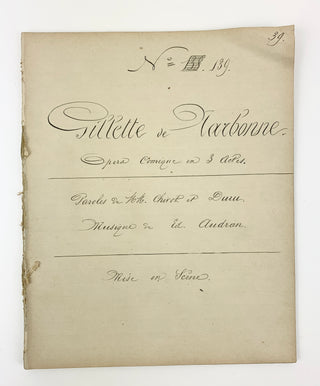 39.
No 139.
Gillette de Narbonne.
Opéra Comique en 3 Actes.
Paroles de MM. Chivot et Duru
Musique de Ed. Audran.
Mise en Scène